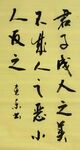 君子成人之美
不成人之恶小
人反之